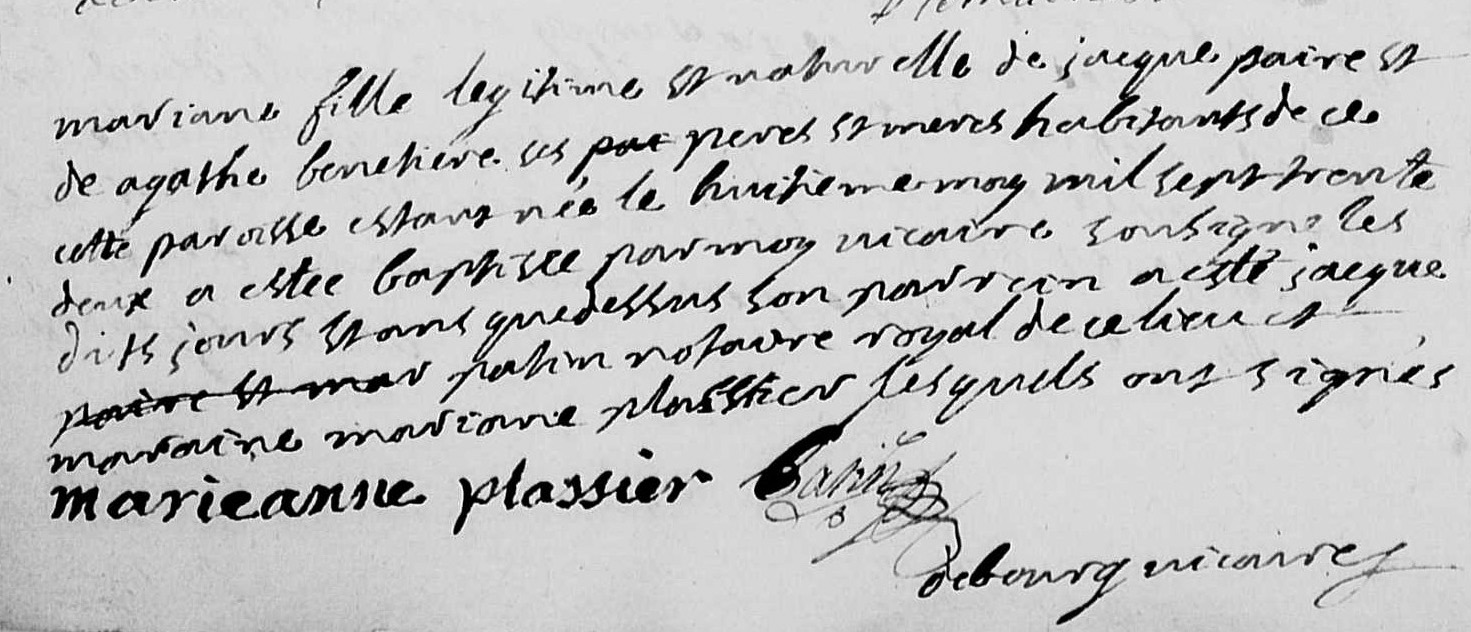 mariane fille legitime et naturelle de jacque paire et
de agathe benetiere ses peres et meres habitants de ce
cette paroisse estant née le huitieme may mil sept trente
deux a estee baptisee par moy vicaire sousigne les
dits jours et ans que dessus son parrein a esté jacque
paire et mar patin notaire royal de ce lieu et
maraine mariane plassier lesquels ont signés
marieanne plassier Patin
debourg vicaire